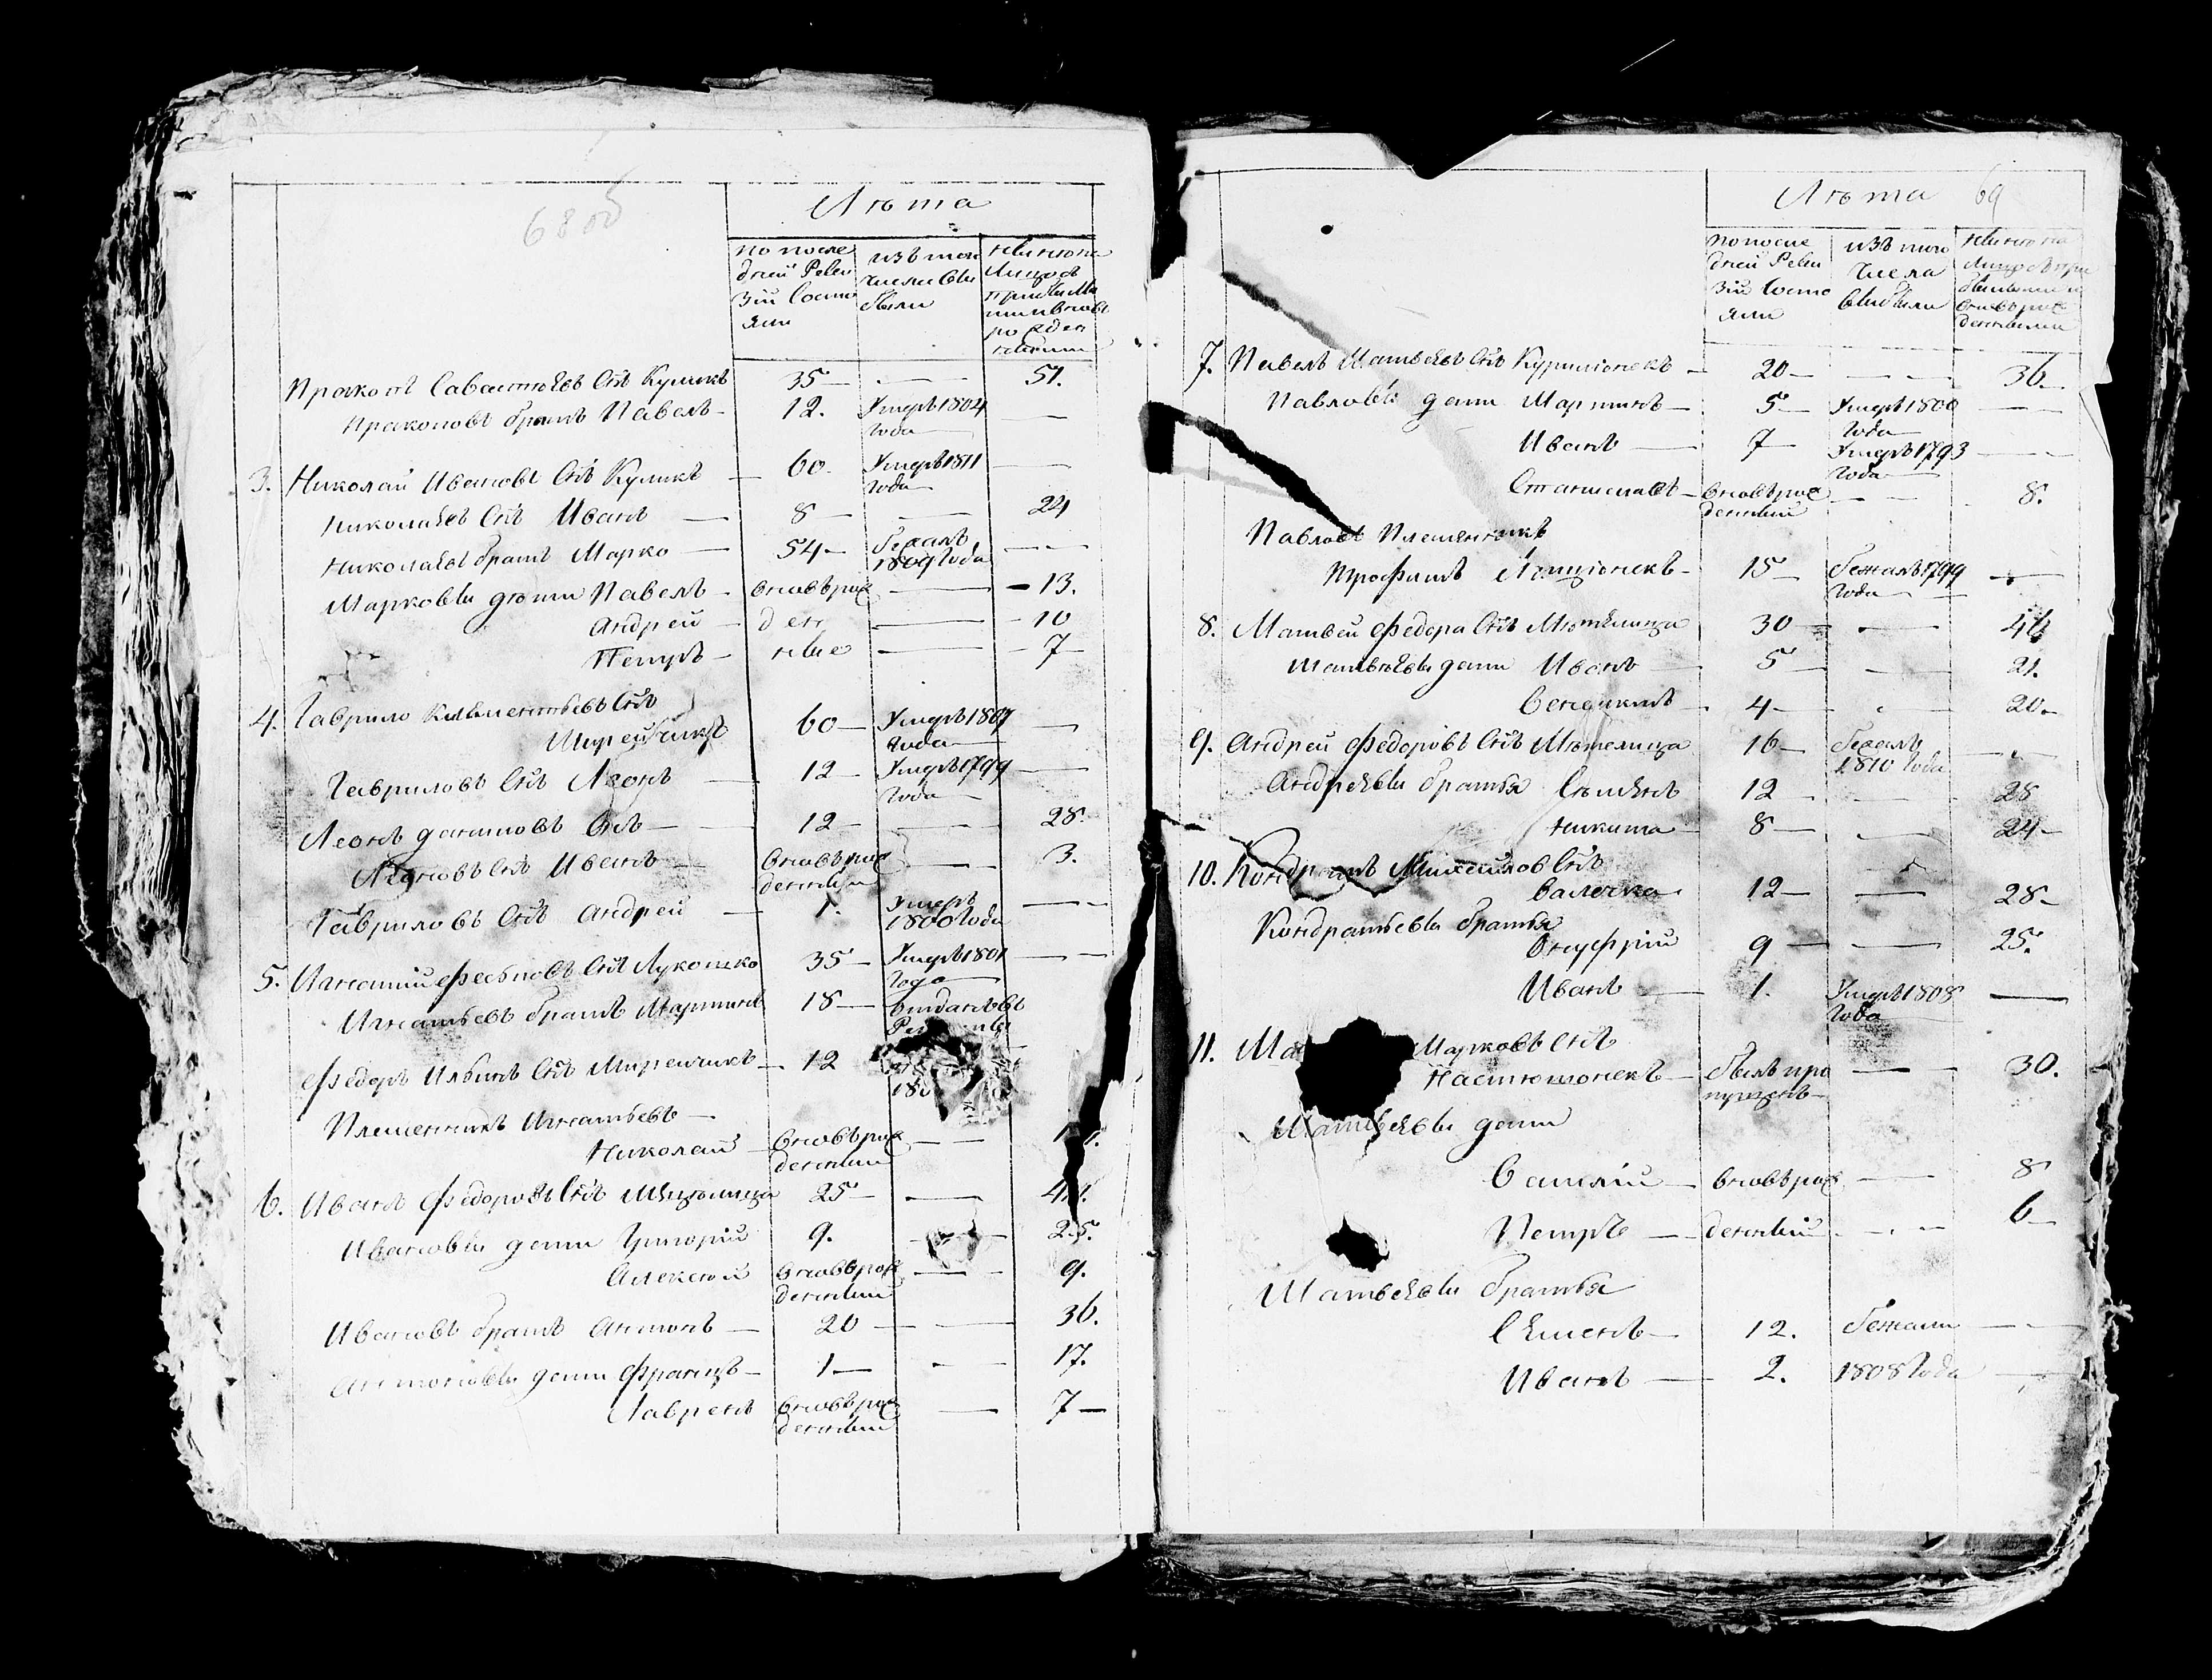 68 об
Лѣта
по после
дней Реви
зіи Состо
яли
изъ того
числа вы
были
нынѣ на
лицо съ
прибылы
ми и вновь
рожден
ными
Прокопъ Савастѣевъ Сынъ Куликъ 35 — — 51.
Прокоповъ братъ Павелъ — 12. Умеръ 1804 —
года
3. Николай Ивановъ Сынъ Куликъ — 60. Умеръ 1811 —
года
Николаевъ Сынъ Иванъ — 8 — — 24
Николаевъ братъ Марко — 54 — бежалъ — —
1809 года
Марковы дѣти Павелъ — вновь рож — 13.
Андрей — ден — 10
Петръ — ные — 7
4. Гаврило Клементьевъ Сынъ
Мирейчикъ 60 — Умеръ 1807 —
года
Гавриловъ Сынъ Леонъ — 12 — Умеръ 1799 —
года
Леонъ даниловъ Сынъ — 12 — — 28.
Леоновъ Сынъ Иванъ — вновь рож — 3.
денный
Гавриловъ Сынъ Андрей — 1. Умеръ — —
1800 года
5. Игнатій Сынъ Лукошко 35 — Умеръ 1801 — —
года
Игнатьевъ братъ Мартинъ 18 — въ
Федоръ Ильинъ Сынъ Мирейчикъ — 12
180
Племенникъ Игнатьевъ —
Николай — вновь рож — —
денный
6. Иванъ Федоровъ Сынъ 25 — — 41.
Ивановы дети Григорій 9. — 25.
Алексей вновь рож — — 9.
денный
Ивановъ братъ Антонъ — 20 — — 36.
Антоновы дети Францъ — 1 — — 17.
Лавренъ вновь рож — 7 —
денный
Лѣта 69
по после
дней Реви
зіи Состо
яли
изъ того
числа
выбыли
нынѣ на
лицо съ при
былыми и
вновь рож
денными
7. Павелъ Матвѣевъ Сынъ — 20 — — — 36.
Павловы дети Мартинъ — 5 — Умеръ 1800 — —
года
Иванъ — 7 — Умеръ 1793 — —
года
Станиславъ — вновь рож — — 8.
денный
Павловъ Племянникъ
Трофимъ — 15 — бежалъ 1799 —
года
8. Матвей Федора Сынъ Мютелица 30 — — 46
Матвѣевы дети Иванъ — 5 — — 21.
Венедиктъ — 4 — — 20 —
9. Андрей Федоровъ Сынъ Мютелица 16 — бежалъ — —
1810 года
Андреевы братья Сымонъ 12 — — 28
Никита — 8 — — 24 —
10. Кондратъ Михайлов Сынъ
Валочко 12 — — 28 —
Кондратьевы братья
Онуфрій 9 — — 25.
Иванъ — 1. Умеръ 1808 —
года
11. Ма Марковъ Сынъ
Настюшонекъ — былъ про — 30.
пущенъ —
Матвѣевы дети
Василій — вновь рож — 8
Петръ — денный — — 6 —
Матвѣевы братья
Семенъ — 12. бежали — —
Иванъ — 2. 1808 года —